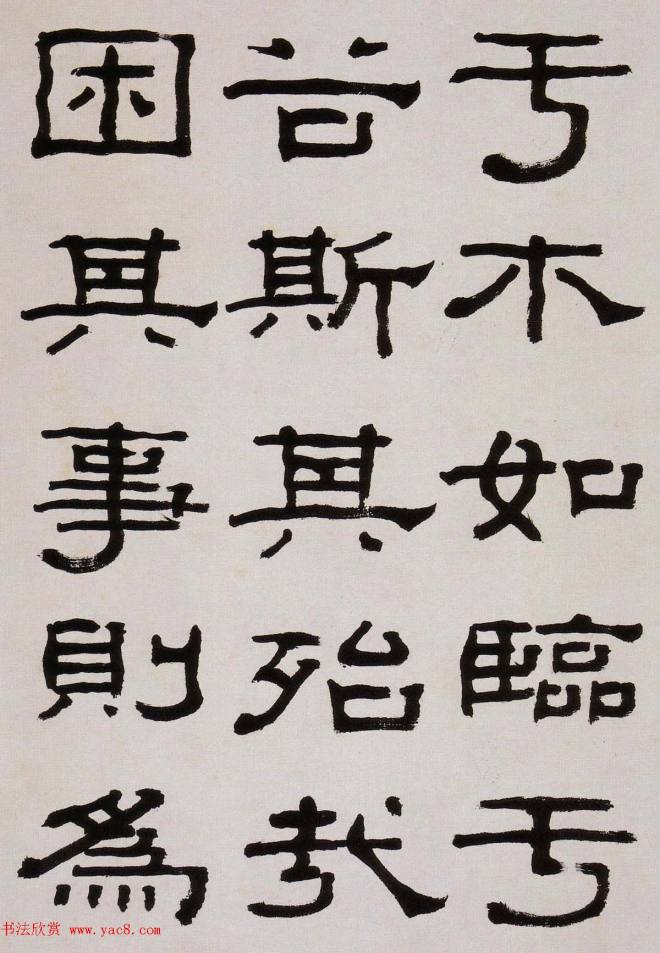 于木如臨于
谷斯其殆哉
困其事則為
书法欣赏 www.yac8.com